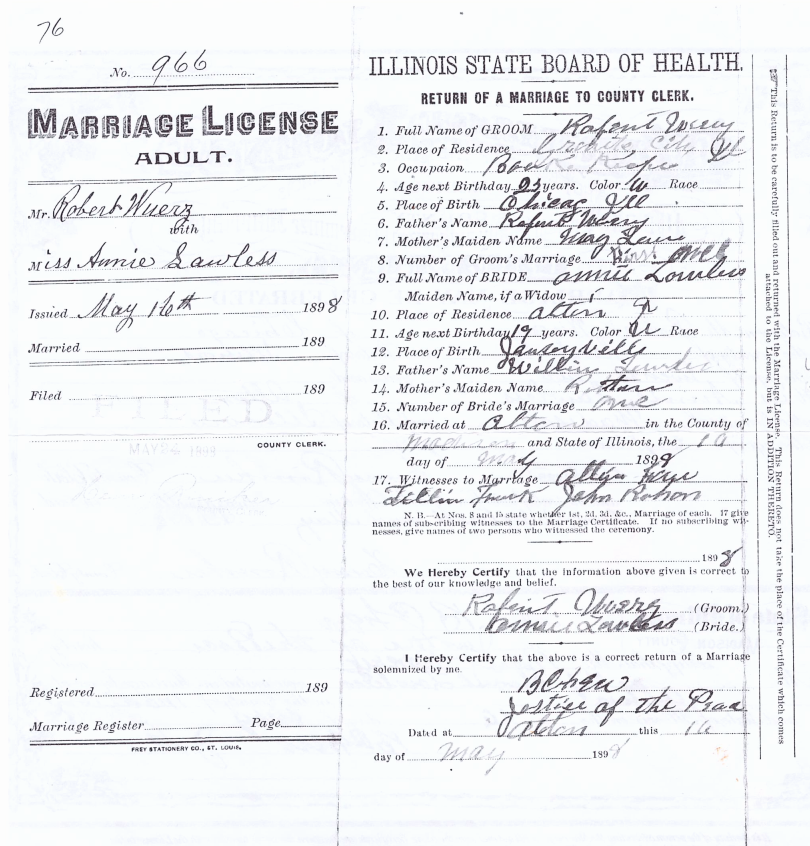 76
No. 966
MARRIAGE LICENSE
ADULT.
Mr. Robert Wuerz
with
Miss Annie Lawless
Issued May 16th 1898
Married 189
Filed 189
COUNTY CLERK.
Registered 189
Marriage Register Page
FREY STATIONERY CO., ST. LOUIS.
ILLINOIS STATE BOARD OF HEALTH.
RETURN OF A MARRIAGE TO COUNTY CLERK.
1. Full Name of GROOM
2. Place of Residence Granite City Ill
3. Occupaion
4. Age next Birthday 23 years. Color W Race
5. Place of Birth Chicago Ill
6. Father's Name
7. Mother's Maiden Name
8. Number of Groom's Marriage One
9. Full Name of BRIDE Annie Lawless
Maiden Name, if a Widow
10. Place of Residence Alton
11. Age next Birthday 19 years. Color W Race
12. Place of Birth
13. Father's Name
14. Mother's Maiden Name
15. Number of Bride's Marriage one
16. Married at Alton in the County of
Madison and State of Illinois, the 16
day of May 1898
17. Witnesses to Marriage
John
N. B.—At Nos. 8 and 15 state whether 1st, 2d, 3d, &c., Marriage of each. 17 give
names of subscribing witnesses to the Marriage Certificate. If no subscribing wit-
nesses, give names of two persons who witnessed the ceremony.
1898
We Hereby Certify that the information above given is correct to
the best of our knowledge and belief.
(Groom.)
Annie Lawless (Bride.)
I Hereby Certify that the above is a correct return of a Marriage
solemnized by me.
Justice of the Peace
Dated at Alton this 16
day of May 1898
☞ This Return is to be carefully filled out and returned with the Marriage License. This Return does not take the place of the Certificate which comes
attached to the License, but is IN ADDITION THERETO.